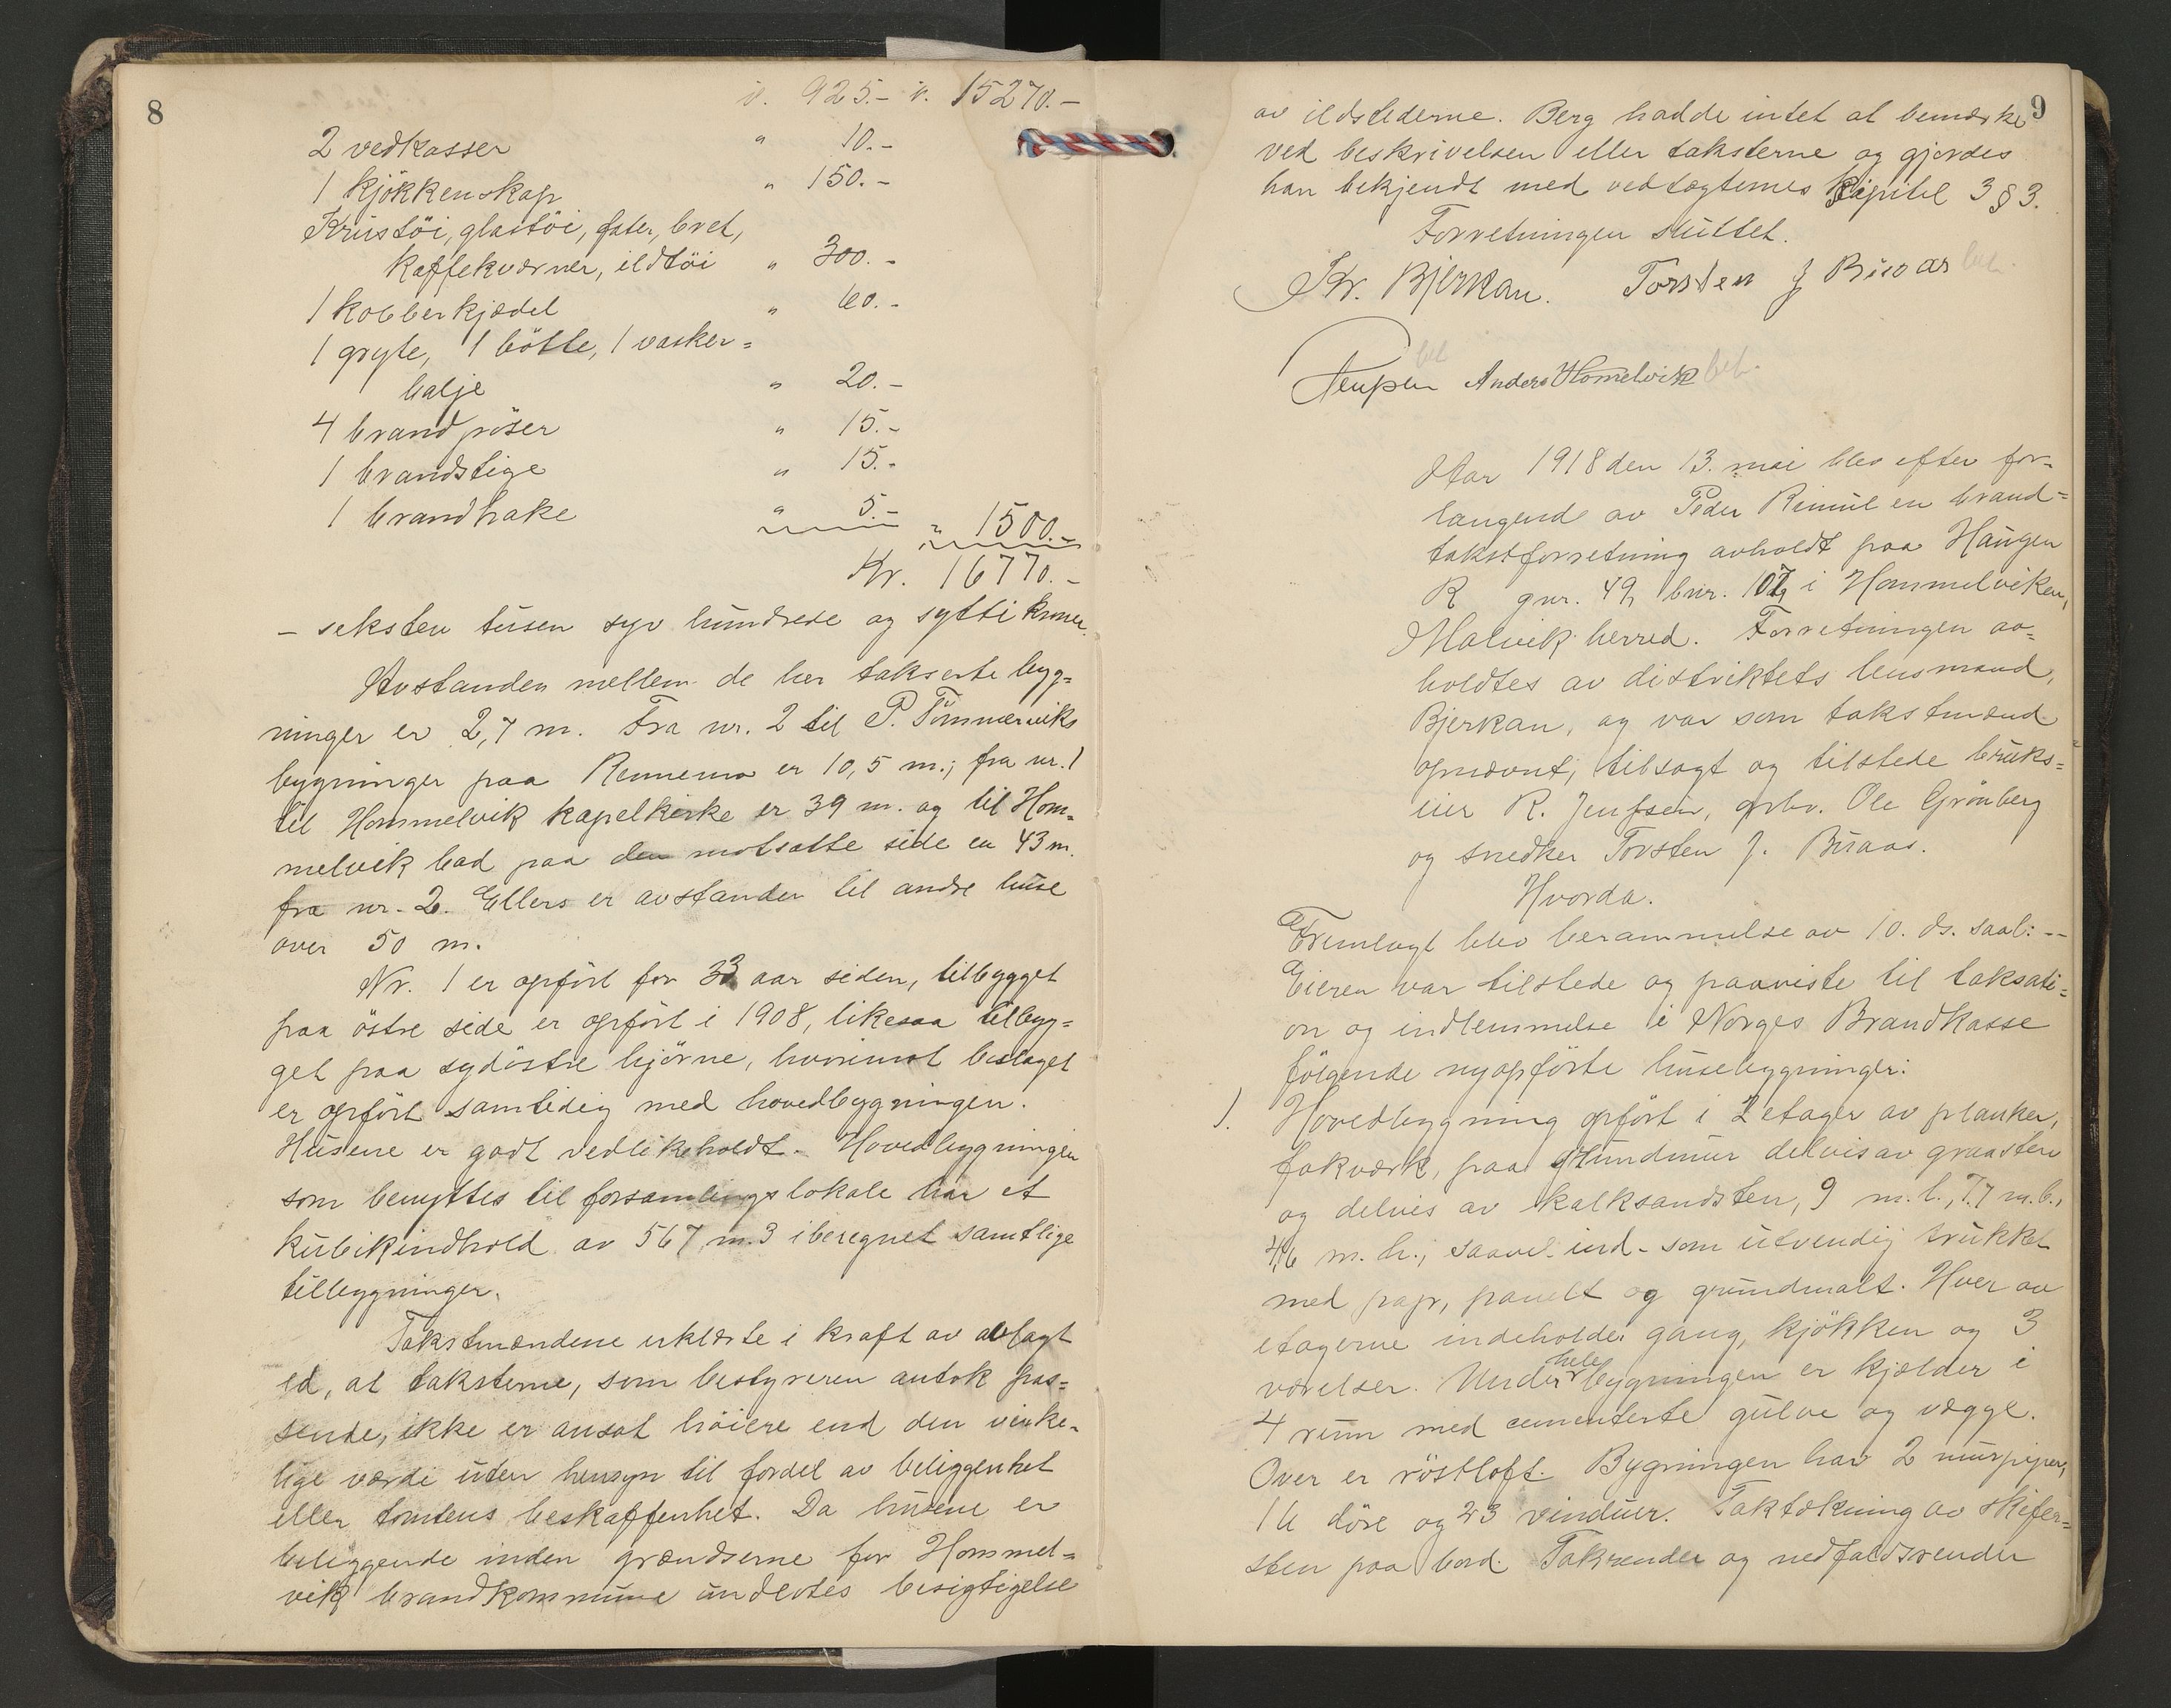 8
v. 925.- v. 15270.-
2 vedkasser " 10.-
1 kjökkenskap " 150.-
Krustöi, glastöi, fater, bret,
kaffekværner, ildtöi " 300.-
1 kobberkjædel " 60.-
1 gryte, 1 bötte, 1 vasker=
balje " 20.-
4 brandpöser " 15.-
1 brandstige " 15.-
1 brandhake " 5.- " 1500.-
Kr. 16770.-
- seksten tusen syv hundrede og sytti kroner.
Avstanden mellem de her takserte byg=
ninger er 2,7 m. Fra nr. 2 til P. Tömmerviks
bygninger paa Rennemo er 10,5 m.; fra nr. 1
til Hommelvik kapelkirke er 39 m. og til Hom=
melvik bad paa den motsatte side er 43 m.
fra nr. 2. Ellers er avstanden til andre huse
over 50 m.
Nr. 1 er opfört for 33 aar siden, tilbygget
paa östre side er opfört i 1908, likesaa tilbyg=
get paa sydöstre hjörne, hvorimot bislaget
er opfört samtidig med hovedbygningen.
Husene er godt vedlikeholdt. Hovedbygningen
som benyttes til forsamlingslokale har et
kubikindhold av 567 m.3 iberegnet samtlige
tilbygninger.
Takstmændene erklærte i kraft av avlagt
ed, at taksterne, som bestyreren antok pas=
sende, ikke er ansat höiere end den virke-
lige værdi uten hensyn til fordel av beliggenhet
eller tomtens beskaffenhet. Da husene er
beliggende inden grændserne for Hommel=
vik brandkommune undlotes besigtigelse
9
av ildstederne. Berg hadde intet at bemærke
ved beskrivelsen eller taksterne og gjordes
han bekjendt med vedtægternes kapitel 3 § 3.
Forretningen sluttet.
Kr. Bjerkan. Torsten J Buaas bet.
bet
Jenssen Anders Homelvik bet.
Aar 1918 den 13. mai blev efter for=
langende av Peder Rimul en brand=
takstforretning avholdt paa Haugen
R gnr. 49, bnr. 107, i Hommelviken,
Malvik herred. Forretningen av=
holdtes av distriktets lensmand,
Bjerkan, og var som takstmænd
opnævnt, tilsagt og tilstede bruks=
eier R. Jenssen, grbr. Ole Grönberg
og snedker Torsten J. Buaas.
Hvorda.
Fremlagt blev berammelse av 10. ds. saal: --
Eieren var tilstede og paaviste til taksati=
on og indlemmelse i Norges Brandkasse
fölgende nyopförte husebygninger:
1. Hovedbygning opfört i 2 etager av planker,
fakværk, paa grundmur delvis av graasten
og delvis av kalksandsten, 9 m. l., 7.7 m. b.,
4,6 m. h., saavel ind- som utvendig trukket
med pap, panelt og grundmalt. Hver av
etagerne indeholder gang, kjökken og 3
værelser. Under hele bygningen er kjælder i
4 rum med cementerte gulve og vægge.
Over er röstloft. Bygningen har 2 murpiper,
16 döre og 23 vinduer. Taktækning av skifer=
sten paa bord. Takrender og nedfaldsrender